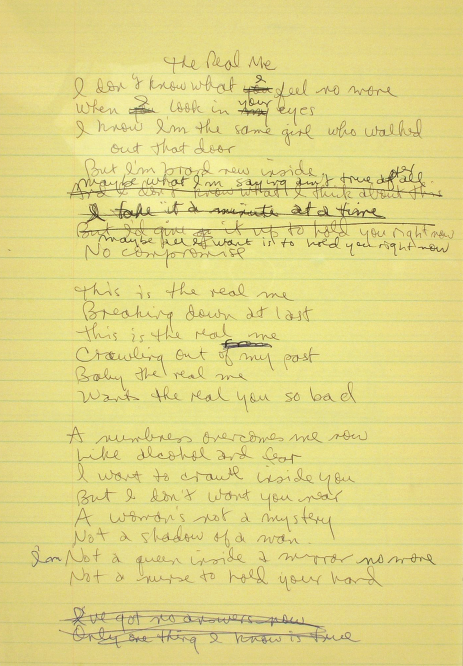 The Real Me
I don't know what I feel no more
When I look in your eyes
I know I'm the same girl who walked
out that door
But I'm brand new inside
Maybe what I'm saying ain't true after all
And I don't know what I think about this
I take it a minute at a time
But I'd give it up to hold you right now
Maybe all I want is to hold you right now
No compromise
This is the real me
Breaking down at last
This is the real me
Crawling out of my past
Baby the real me
Wants the real you so bad
A numbness overcomes me now
Like alcohol and fear
I want to crawl inside you
But I don't want you near
A woman's not a mystery
Not a shadow of a man.
I'm Not a queen inside a mirror no more
Not a nurse to hold your hand
I've got no answers now
Only one thing I know is true